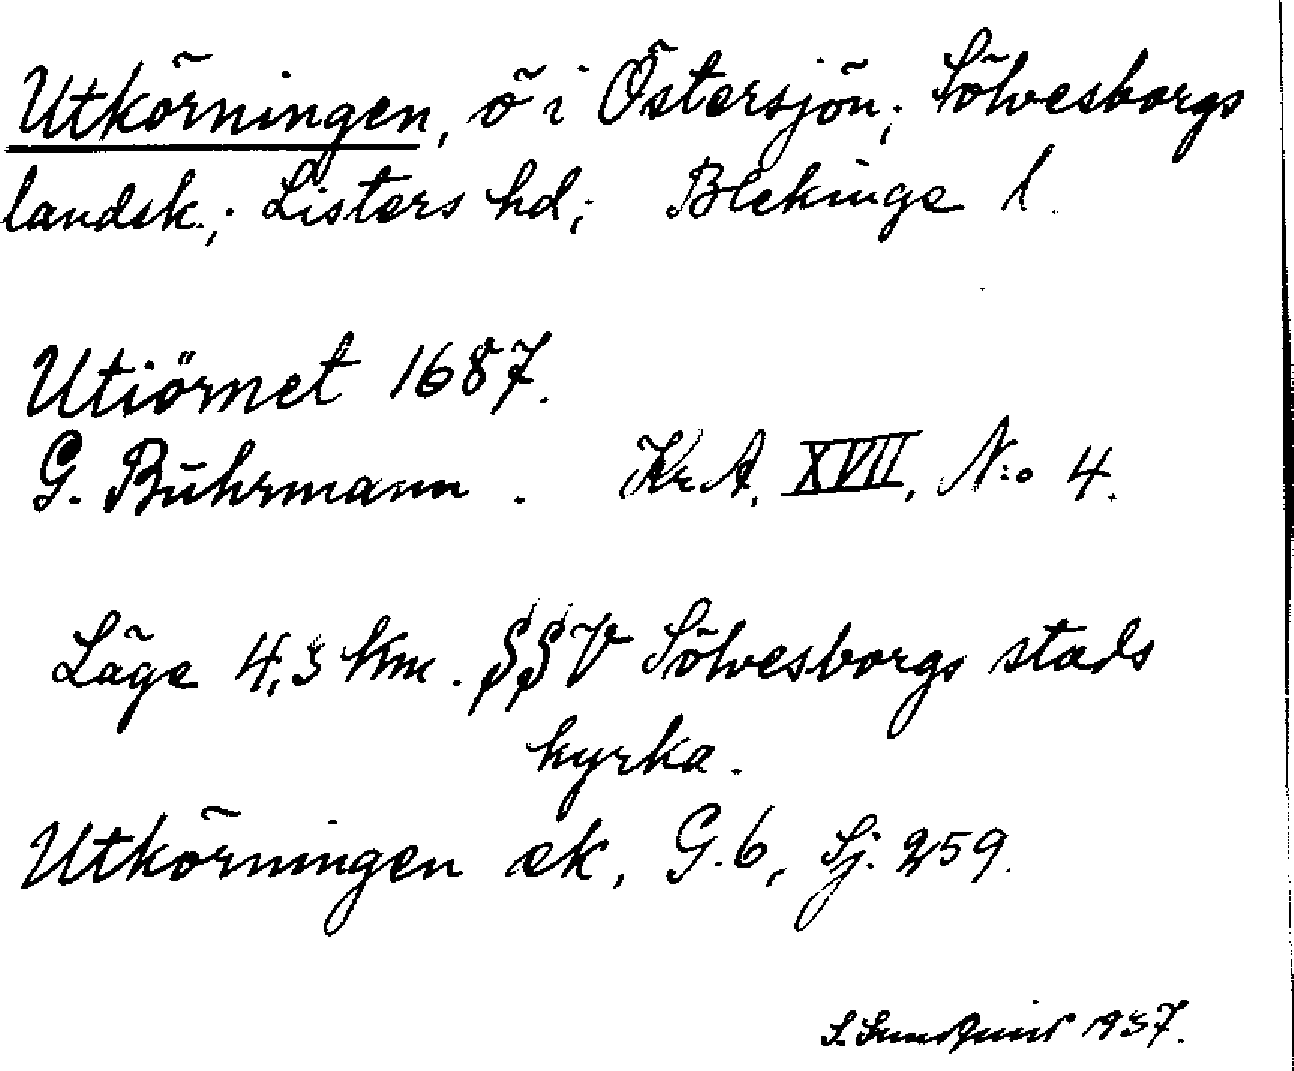 Utkörningen, ö i Östersjön; Sölvesborgs
landsk.; Listers hd; Blekinge l.
Utiörnet 1687.
G. Bührmann. Kr.A. XVII, N:o 4.
Läge 4,3 km. SSV Sölvesborgs stads
kyrka.
Utkörningen ek, G.6, Sj. 259.
S. 1937.